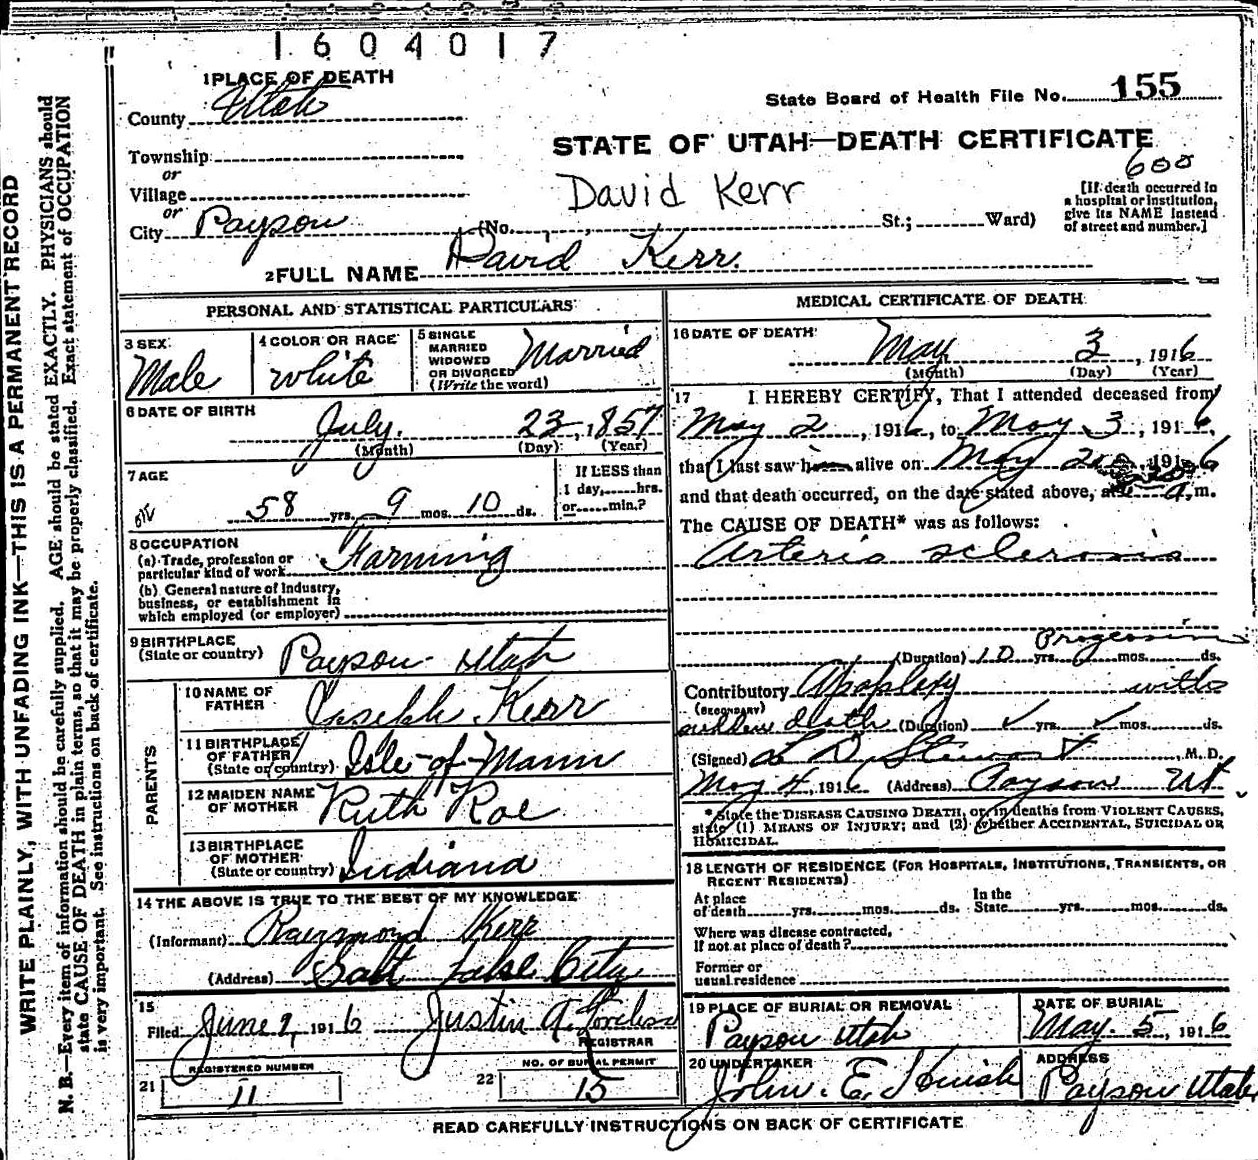 1604017
1 PLACE OF DEATH
County Utah
State Board of Health File No. 155
Township
or
Village
or
City Payson
STATE OF UTAH—DEATH CERTIFICATE
600
David Kerr
[If death occurred in
a hospital or institution,
give its NAME instead
of street and number.]
(No. St.; Ward)
2 FULL NAME David Kerr.
PERSONAL AND STATISTICAL PARTICULARS
3 SEX
Male
4 COLOR OR RACE
White
5 SINGLE
MARRIED
WIDOWED
OR DIVORCED
(Write the word)
Married
6 DATE OF BIRTH
July. 23, 1857
(Month) (Day) (Year)
7 AGE
58 yrs. 9 mos. 10 ds.
If LESS than
1 day, hrs.
or min.?
8 OCCUPATION
(a) Trade, profession or
particular kind of work Farming
(b) General nature of Industry,
business, or establishment in
which employed (or employer)
9 BIRTHPLACE
(State or country) Payson Utah
PARENTS
10 NAME OF
FATHER Joseph Kerr
11 BIRTHPLACE
OF FATHER
(State or country) Isle-of-Mann
12 MAIDEN NAME
OF MOTHER Ruth Roe
13 BIRTHPLACE
OF MOTHER
(State or country) Indiana
14 THE ABOVE IS TRUE TO THE BEST OF MY KNOWLEDGE
(Informant) Raymond Kerr
(Address) Salt Lake City
15
Filed June 1, 1916 Justin A. Loveless
REGISTRAR
REGISTERED NUMBER
21 11
NO. OF BURIAL PERMIT
22 15
MEDICAL CERTIFICATE OF DEATH
16 DATE OF DEATH
May 3, 1916
(Month) (Day) (Year)
17 I HEREBY CERTIFY, That I attended deceased from
May 2, 1916, to May 3, 1916,
that I last saw h alive on May 2, 1916
and that death occurred, on the date stated above, at a.m.
The CAUSE OF DEATH* was as follows:
Arterio sclerosis
Progressive
(Duration) 10 yrs. mos. ds.
Contributory Apoplexy with
(SECONDARY)
sudden death (Duration) yrs. mos. ds.
(Signed) L D. Stewart M. D.
May 4, 1916 (Address) Payson Ut
* State the DISEASE CAUSING DEATH, or, in deaths from VIOLENT CAUSES,
state (1) MEANS OF INJURY; and (2) whether ACCIDENTAL, SUICIDAL OR
HOMICIDAL.
18 LENGTH OF RESIDENCE (FOR HOSPITALS, INSTITUTIONS, TRANSIENTS, OR
RECENT RESIDENTS)
At place
of death yrs. mos. ds.
In the
State yrs. mos. ds.
Where was disease contracted,
if not at place of death?
Former or
usual residence
19 PLACE OF BURIAL OR REMOVAL
Payson Utah
DATE OF BURIAL
May. 5, 1916
20 UNDERTAKER
John. E. Huish
ADDRESS
Payson Utah
READ CAREFULLY INSTRUCTIONS ON BACK OF CERTIFICATE
WRITE PLAINLY, WITH UNFADING INK—THIS IS A PERMANENT RECORD
N. B.—Every item of information should be carefully supplied. AGE should be stated EXACTLY. PHYSICIANS should
state CAUSE OF DEATH in plain terms, so that it may be properly classified. Exact statement of OCCUPATION
is very important. See instructions on back of certificate.